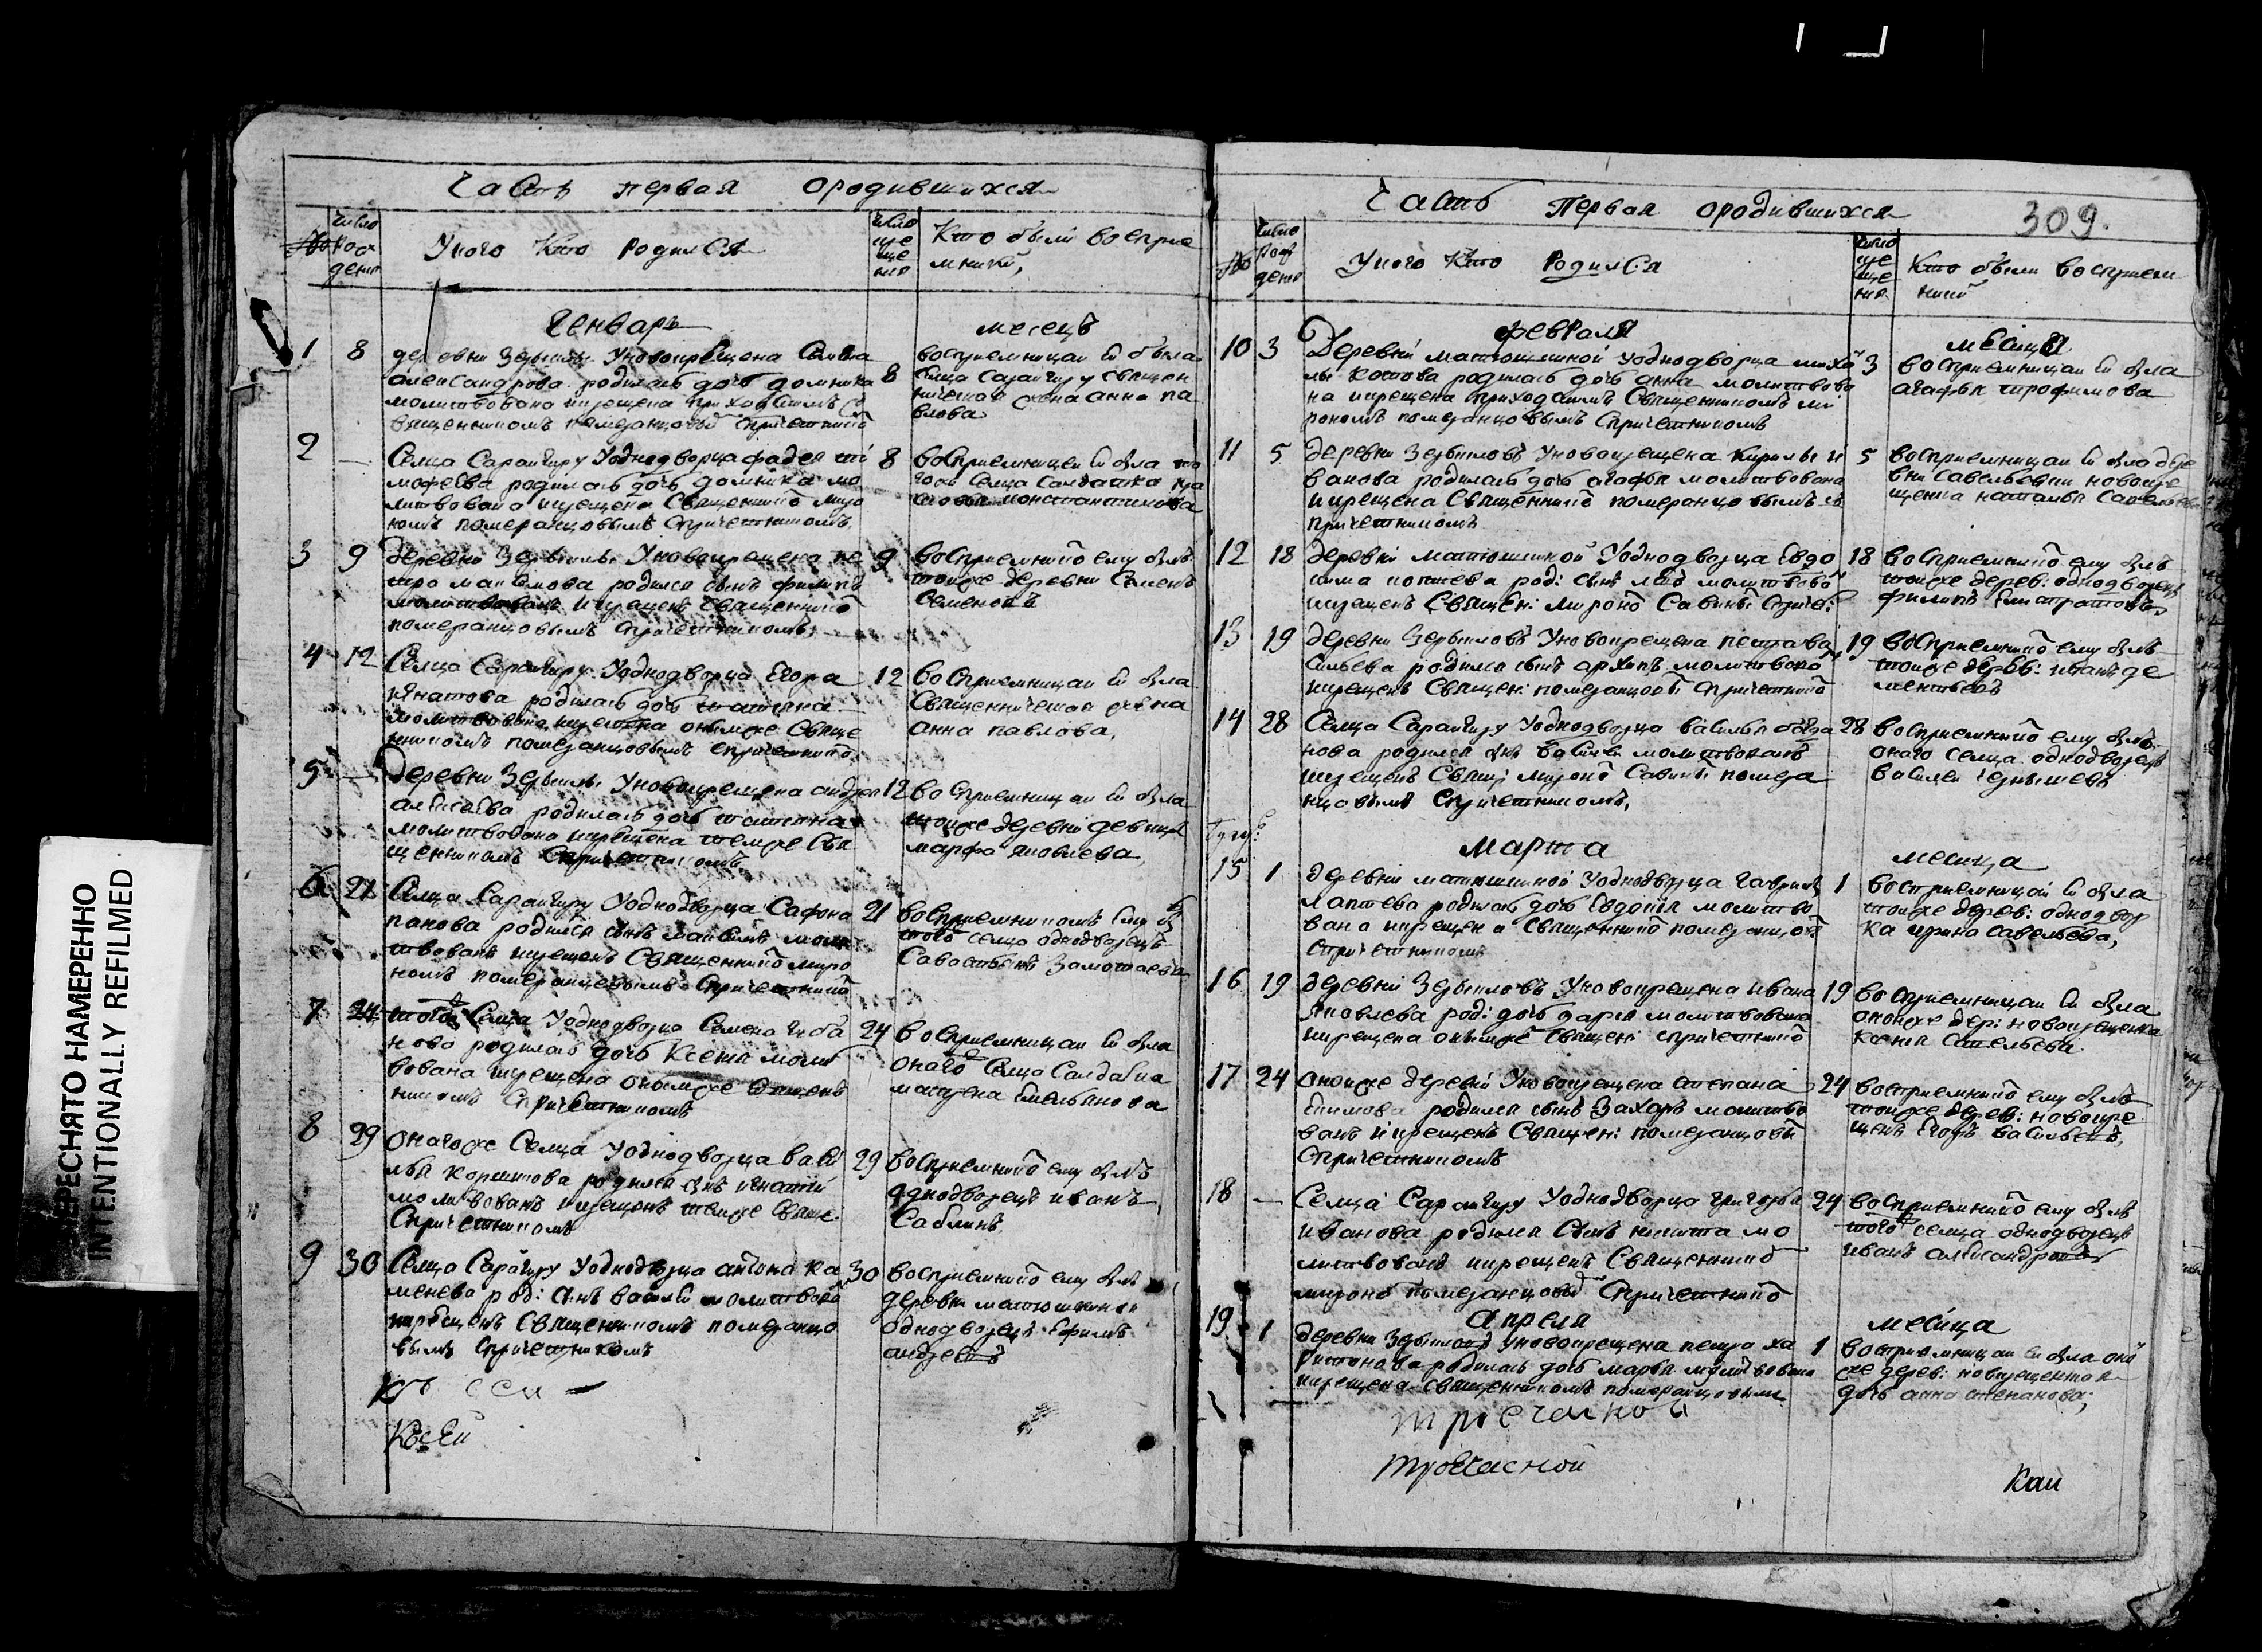 Часть первая ородившихся
№
число рож дения
Укого Кто родился
число кре ще ния
Кто были восприе
мники,
Генварь
месецъ
1 8
деревни Зерыклы Уновокрещена
александрова родилась дочь домника
молитвована икрещена приходскимъ
священникомъ померанцовымъ спричетникомъ
8
восприемницаи ей была
селца Сарангиру священ
ническая жена анна па
влова
2 —
Селца Сарангиру Уоднодворца фадея ти
мофеева родилась дочь домника мо
литвована икрещена Священникомъ миро
номъ померанцовымъ спричетникомъ
8
восприемницеи ей была
селца Салдатка
константинова
3 9
деревни Зерыклы Уновокрещена пе
тра максимова родился сынъ филипъ
молитвованъ икрещенъ священникомъ
померанцовымъ спричетникомъ
9
восприемникомъ ему былъ
тоиже деревни Семенъ
Семеновъ
4 12
Селца Сарангиру Уоднодворца Егора
игнатова родилась дочь татияна
молитвована икрещена онымже Свяще
нникомъ померанцовымъ спричетникомъ
12
восприемницаи ей была
Священническая жена
анна павлова,
5 —
Деревни Зерыклы Уновокрещена андрея
алексеева родилась дочь татияна
молитвована икрещена темже Свя
щенникомъ спричетникомъ
12
восприемницаи ей была
тоиже деревни девица
марфа яковлева
6 21
Селца Сарангиру Уоднодворца Сафона
панова родился сынъ максимъ моли
твованъ икрещенъ Священникомъ миро
номъ померанцовымъ спричетникомъ
21
восприемникомъ ему былъ
тогожъ селца однодворецъ
Савостьянъ Замотаевъ
7 24
тогожъ Селца Уоднодворца Семена
нова родилась дочь Ксения моли
вована икрещена онымже Священъ
никомъ спричетникомъ
24
восприемницаи ей была
онагожъ Селца Салдатка
матрена Емельянова
8 29
онагоже Селца Уоднодворца васи
лья Коршикова родился сынъ игнатий
моливованъ икрещенъ темже Свяще
Спричетникомъ
29
восприемникомъ ему былъ
однодворецъ иванъ
Саблинъ
9 30
Селца Сарангиру Уоднодворца антона ка
менева род: сынъ василей молитвованъ
икрещенъ священникомъ померанцо
вымъ спричетникомъ
30
восприемникомъ ему былъ
деревни матюшкинои
однодворецъ Ефимъ
андреевъ
Къ сей
Къ Сей
Часть первая ородившихся
309.
№
число рож дения
Укого Кто родился
число кре ще ния
Кто были восприем
ники
февраля
месяца
10 3
Деревни матюшкиной Уоднодворца миха
лы Котова родилась дочь анна молитвова
на икрещена приходскимъ Священникомъ ми
рономъ померанцовымъ спричетникомъ
3
восприемницаи ей была
агафья трофимова
11 5
деревни Зерыкловъ Уновокрещена Кирилы и
ванова родилась дочь агафья молитвована
икрещена Священникомъ померанцовымъ съ
причетникомъ
5
восприемницаи ей была дере
вни Савельевки новокре
щенка наталья Савельева
12 18
деревни матюшкиной Уоднодворца Евдо
кима род: сынъ левъ молитвованъ
икрещенъ Священ: мирономъ Савинымъ Сприче:
18
восприемникомъ ему былъ
тоиже дерев: однодворецъ
филипъ Евстратовъ
13 19
деревни Зерыкловъ Уновокрещена петра ва
сильева родился сынъ архипъ молитвованъ
икрещенъ Священ: померанцовымъ спричетникомъ
19
восприемникомъ ему былъ
тоиже дерев: иванъ де
ментьевъ
14 28
Селца Сарангиру Уоднодворца василья
нова родился сынъ василей молитвованъ
икрещенъ Священ: мирономъ Савинымъ помера
нцовымъ Спричетникомъ,
28
восприемникомъ ему былъ
онаго селца однодворецъ
василей чернышевъ
Марта
месяца
15 1
деревни матюшкиной Уоднодворца гаврилы
лаптева родилась дочь Евдокия молитво
вана икрещена священникомъ померанцовымъ
спричетникомъ
1
восприемницаи ей была
тоиже дерев: однодвор
ка ирина савельева,
16 19
деревни Зерыкловъ Уновокрещена ивана
яковлева род: дочь дарья молитвована
икрещена онымже священ: спричетникомъ
19
восприемницаи ей была
онойже дер: новокрещенка
ксения Савельева
17 24
онойже деревни Уновокрещена степана
Екимова родился сынъ Захаръ молитво
ванъ икрещенъ Священ: померанцовымъ
Спричетникомъ
24
восприемникомъ ему былъ
тоиже дерев: новокре
щенъ Егоръ васильевъ,
18 —
Селца Сарангиру Уоднодворца григорья
иванова родился Сынъ никита мо
литвованъ икрещенъ Священникомъ
мирономъ померанцовымъ Спричетникомъ
24
восприемникомъ ему былъ
тогожъ селца однодворецъ
иванъ александровъ
Апреля
месяца
19 1
деревни Зерыкловъ Уновокрещена петра ха
ритонова родилась дочь марья молитвована
икрещена священникомъ померанцовымъ
1
восприемницаи ей была оной
же дерев: новокрещенская
дочь анна степанова;
троечасной
троечасной
Кни
ПЕРЕСНЯТО НАМЕРЕННО
INTENTIONALLY REFILMED